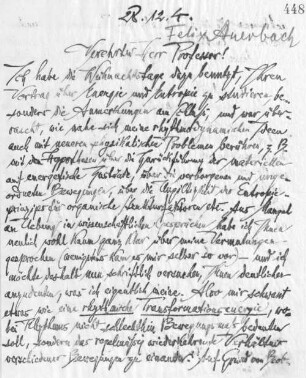 448
28.12.4.
Felix Auerbach
Verehrter Herr Professor!
Ich habe die Weihnachtstage dazu benutzt, Ihren
Vortrag über Energie und Entropie zu studieren be-
sonders die Anmerkungen und war über-
rascht, wie nahe sich meine rhythmodynamischen Ideen
auch mit neueren physikalischen Problemen berühren, z. B.
mit den Hypothesen über die Zurückführung der materiellen
auf energetische Zustände, über die verborgenen und unge-
ordneten Bewegungen, über die Ungültigkeit des Entropie-
prinzips für organische etc. Aus Mangel
an Uebung in wissenschaftlichen Gesprächen habe ich Ihnen
neulich wohl kaum ganz klar über meine Vermutungen
gesprochen, wenigstens kam es mir selber so vor – und ich
möchte deshalb nun schriftlich versuchen, Ihnen deutlicher
anzudeuten, was ich eigentlich meine. Also mir schwant
etwas wie eine rhythmische Transformationsenergie, wo-
bei Rhythmus nicht schlechthin Bewegungsmass bedeuten
soll, sondern das regelmässig wiederkehrende Verhältnis
verschiedener Bewegungen zu einander. Auf Grund von Beob-